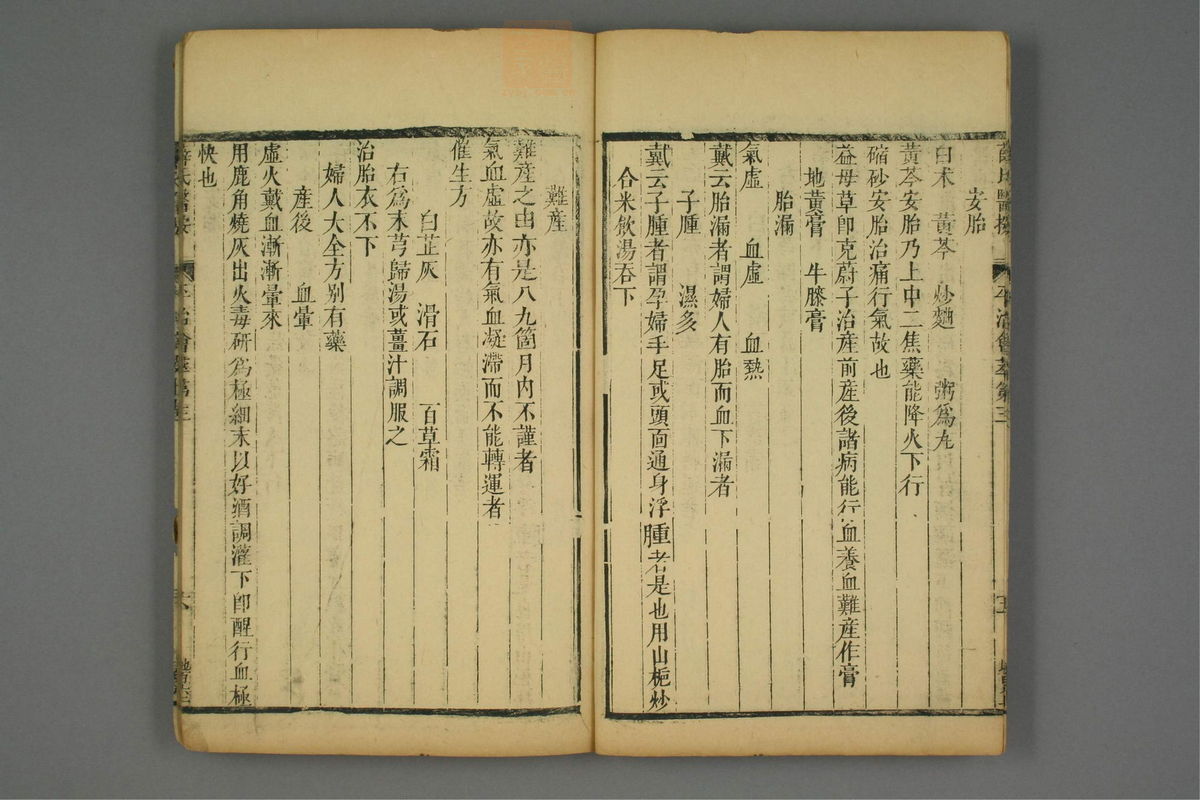 安胎
白朮　黃芩　炒麯　粥爲丸
黃芩安胎乃上中二焦藥能降火下行
縮砂安胎治痛行氣故也
益母草卽茺蔚子治産前産後諸病能行血養血難産作膏
地黃膏　牛膝膏
胎漏
氣虛　血虛　血熱
戴云胎漏者謂婦人有胎而血下漏者
子腫　濕多
戴云子腫者謂孕婦手足或頭面通身浮腫者是也用山梔炒
合米飮湯呑下
難産
難産之由亦是八九箇月內不謹者
氣血虛故亦有氣血凝滯而不能轉運者
催生方
白芷灰　滑石　百草霜
右爲末芎歸湯或薑汁調服之
治胎衣不下
婦人大全方別有藥
産後　血暈
虛火戴血漸漸暈來
用鹿角燒灰出火毒硏爲極細末以好酒調灌下卽醒行血極
快也